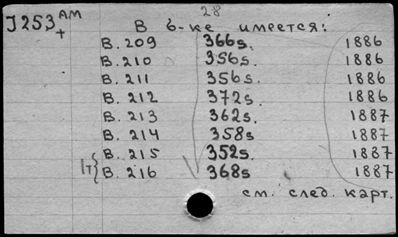 28
J253 АМ
+
В б-ке имеется:
В. 209 366s. 1886
В. 210 356s. 1886
В. 211 356s. 1886
В. 212 372s. 1886
В. 213 362s. 1887
В. 214 358s 1887
В. 215 352s. 1887
1т{ В. 216 368s 1887
см. след. карт.